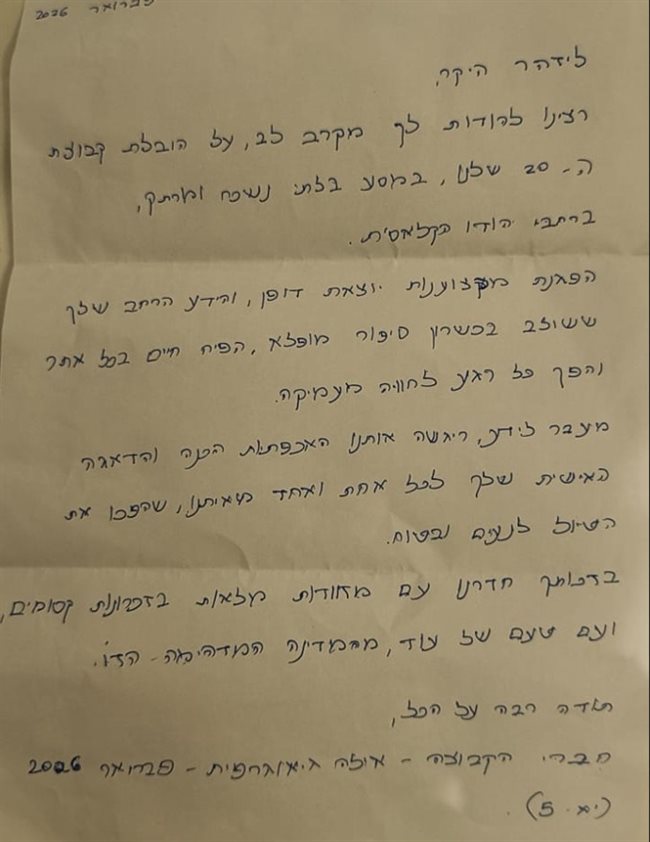 פברואר 2026
לידהר היקר,
רצינו להודות לך מקרב לב, על הובלת קבוצת
ה- 20 שלנו, במסע בלתי נשכח ומרתק,
ברחבי הודו הקלאסית.
הפגנת מקצוענות יוצאת דופן, והידע הרחב שלך
ששולב בכשרון סיפור מופלא, הפיח חיים בכל אתר
והפך כל רגע לחוויה מעמיקה.
מעבר לידע, ריגשה אותנו האכפתיות הכנה והדאגה
האישית שלך לכל אחת ואחד מאיתנו, שהפכו את
הטיול לנעים ובטוח.
בזכותך חזרנו עם מזוודות מלאות בזכרונות קסומים,
ועם טעם של עוד, מהמדינה המדהימה - הזו.
תודה רבה על הכל,
חברי הקבוצה - איילה גיאוגרפית - פברואר 2026